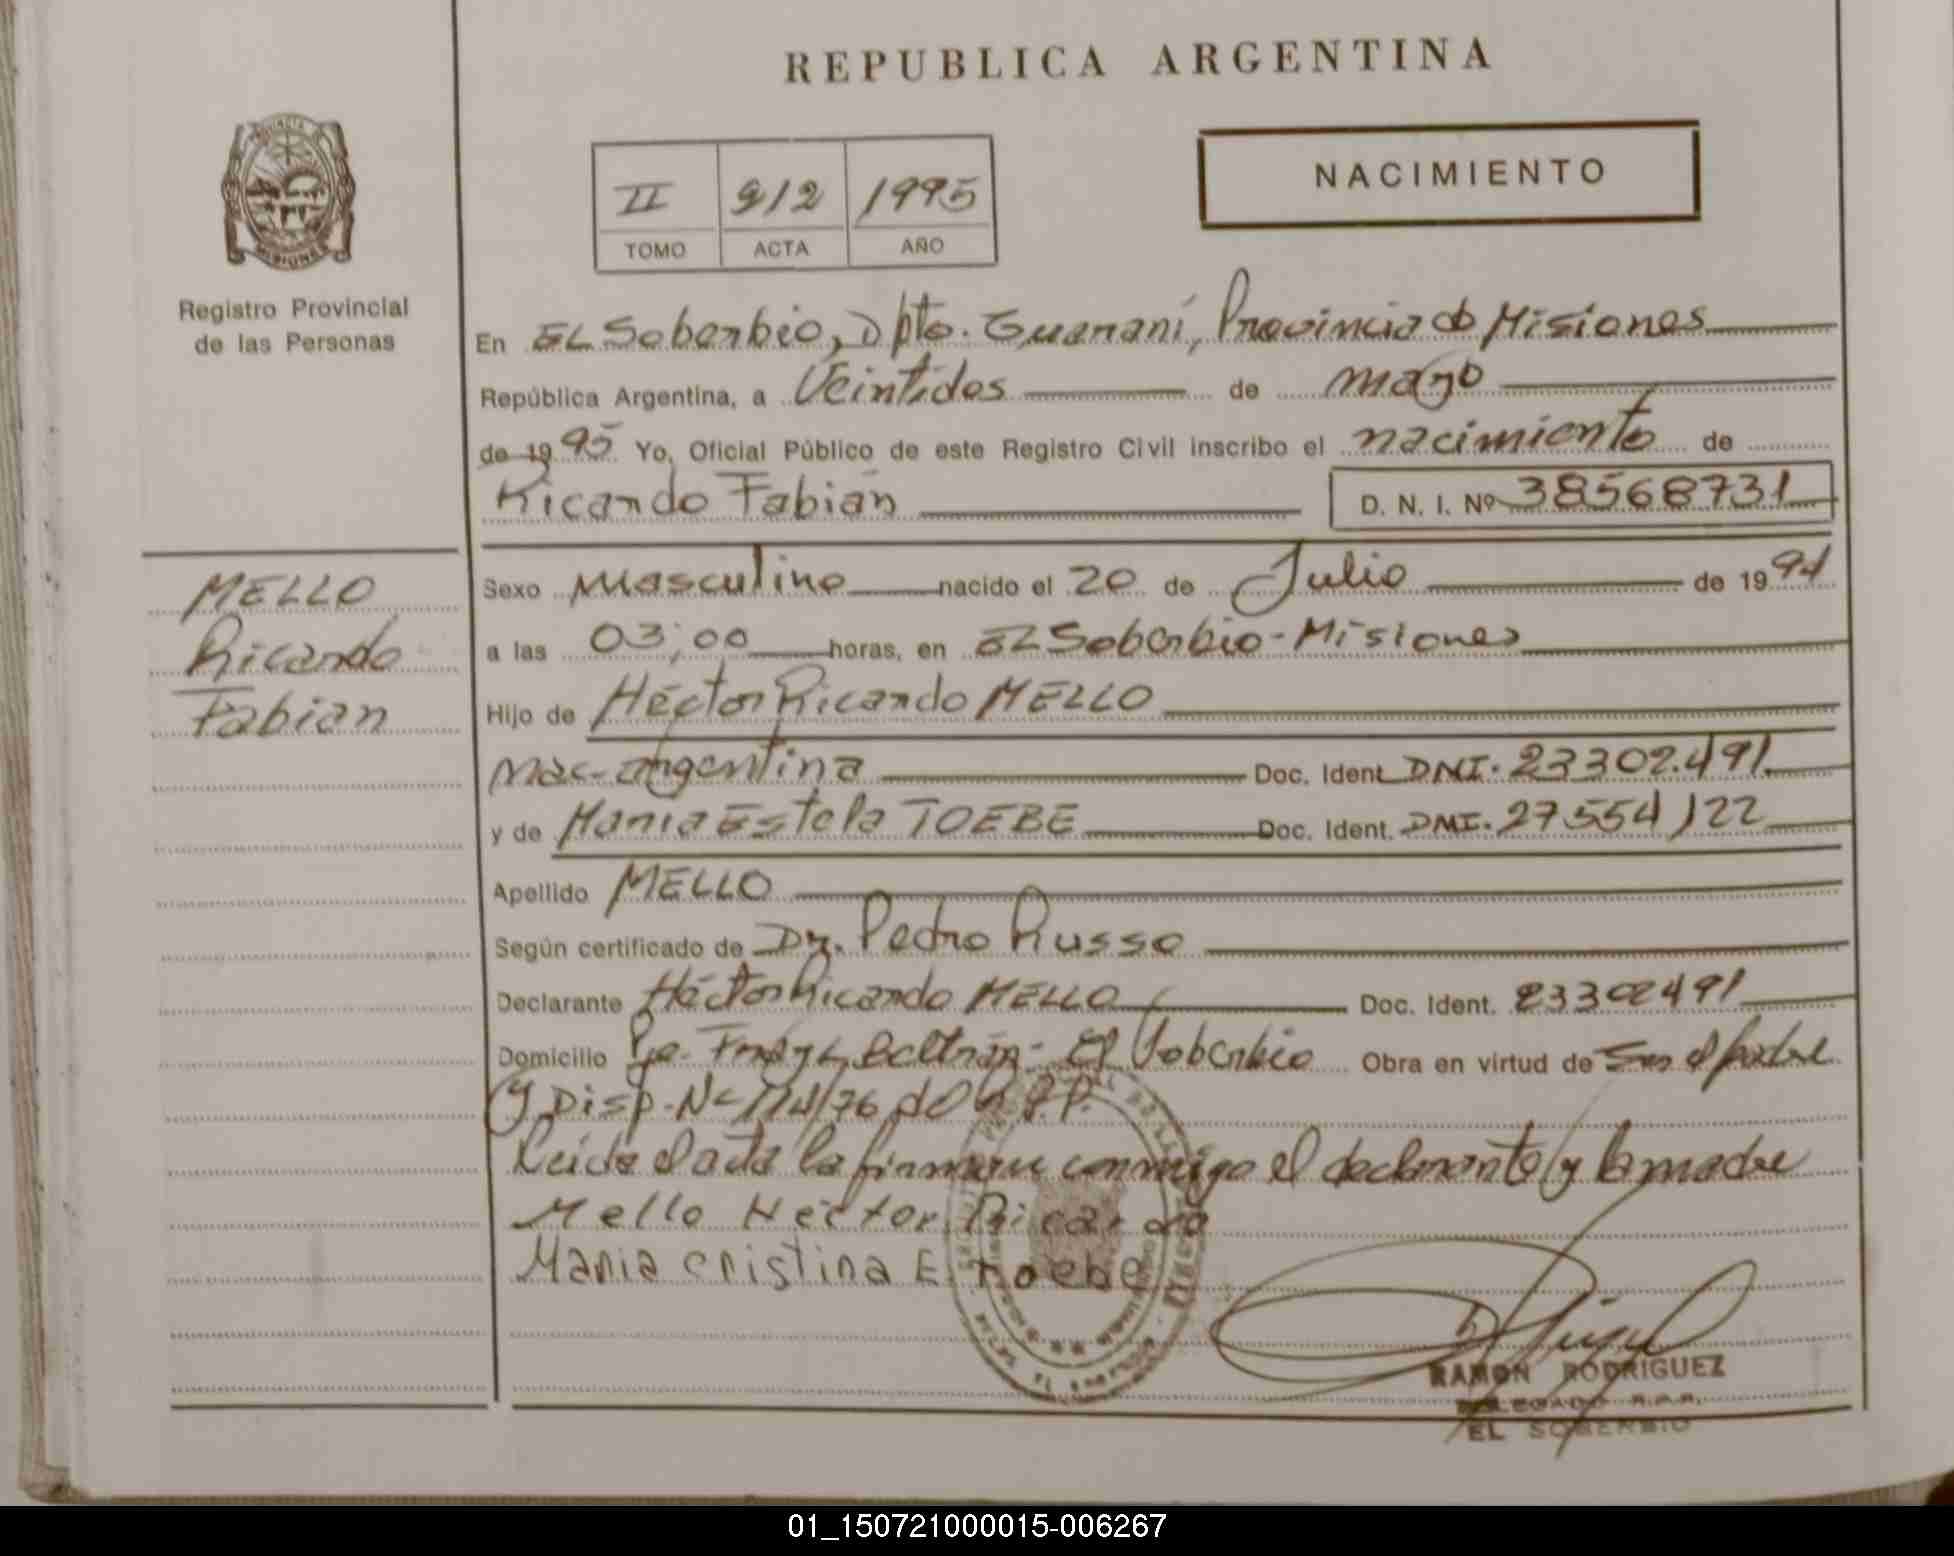 REPUBLICA ARGENTINA
NACIMIENTO
II 212 1995
TOMO ACTA AÑO
Registro Provincial
de las Personas
En EL Soberbio, Dpto. Guaraní, Provincia de Misiones
República Argentina, a Veintidos de mayo
de 1995 Yo, Oficial Público de este Registro Civil inscribo el nacimiento de
Ricardo Fabian D. N. I. Nº 38568731
MELLO
Ricardo
Fabian
Sexo Masculino nacido el 20 de Julio de 1994
a las 03,00 horas, en EL Soberbio - Misiones
Hijo de Héctor Ricardo MELLO
Nac- argentina Doc. Ident. DNI. 23302.491
y de Maria Estela TOEBE Doc. Ident. DNI. 27554122
Apellido MELLO
Según certificado de Dr. Pedro Russo
Declarante Héctor Ricardo MELLO Doc. Ident. 23302491
Domicilio Fray L. Beltrán - El Soberbio Obra en virtud de Ser el padre
y Disp. Nº 114/76 R.P.P.
Leida el acta la firman conmigo el declarante y la madre
Mello Hector Ricardo
Maria Cristina E. Toebe
RAMON RODRIGUEZ
DELEGADO R.P.P.
EL SOBERBIO
01_150721000015-006267